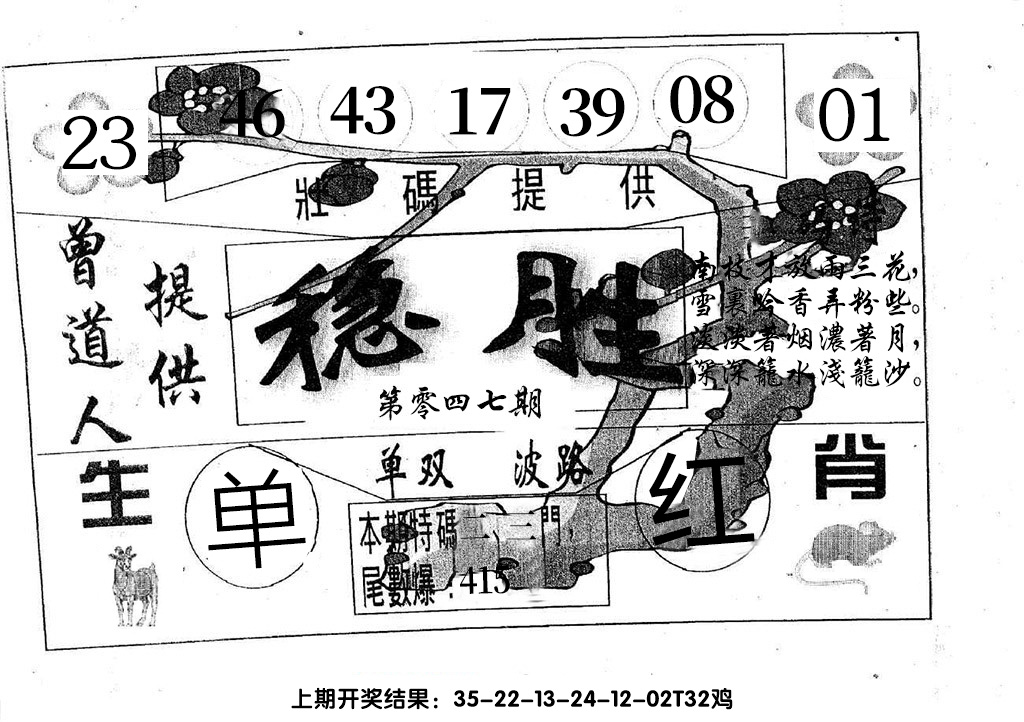 23 46 43 17 39 08 01
壯碼提供
曾道人
提供
稳胜
第零四七期
南枝才放雨三花,
雪裏吟香弄粉些。
淡淡著烟濃著月,
深深籠水淺籠沙。
单双 波路
生 单 红 肖
本期特碼二、三門,
尾數爆:415
上期开奖结果:35-22-13-24-12-02T32鸡